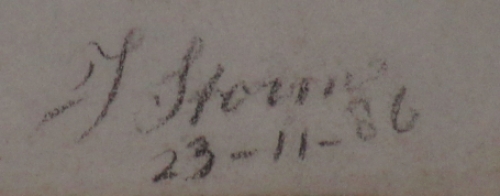 J Storm
23-11-86